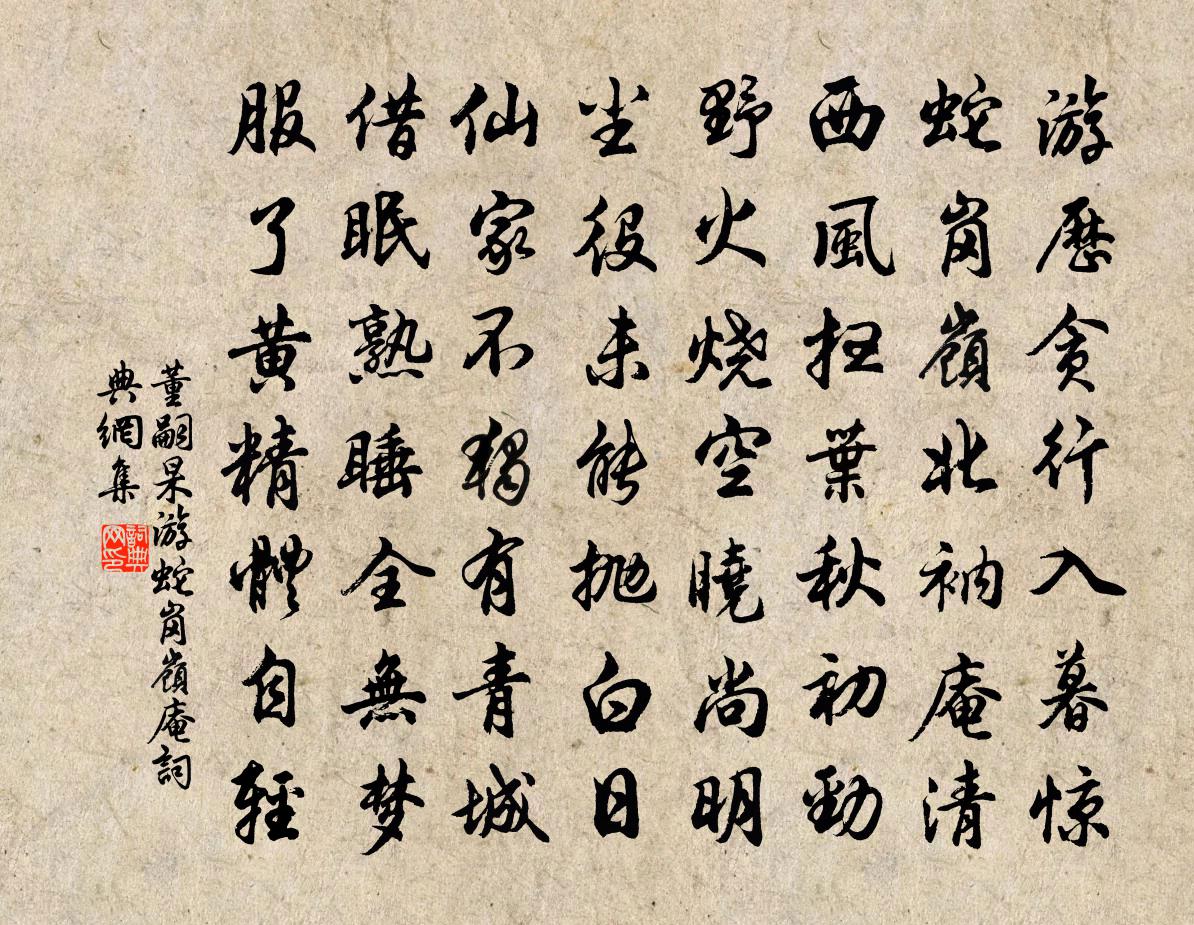 游歷貪行入暮惊
蛇岗嶺北衲庵清
西風扫葉秋初勁
野火烧空曉尚明
尘役未能抛白日
仙家不獨有青城
借眠熟睡全無梦
服了黄精體自輕
董嗣杲游蛇岗嶺庵詞
典網集
詞典
网印